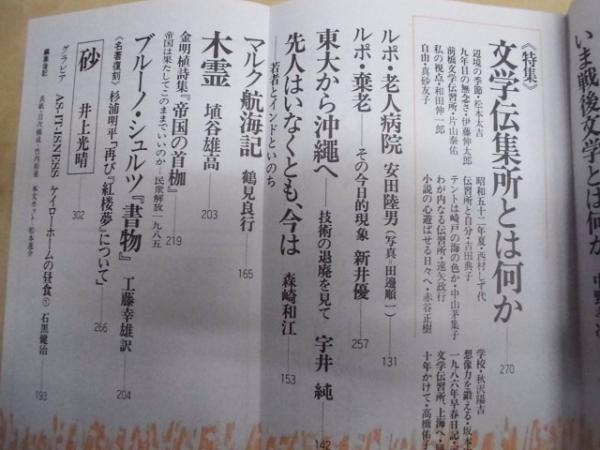 いま戦後文学とは何か
《特集》
文学伝集所とは何か
270
辺境の季節・松本太吉
九年目の無念さ・伊藤伸太郎
前橋文学伝習所・片山泰佑
私の視点・和田伸一郎
自由・真砂友子
昭和五十二年夏・西村しず代
伝習所と自分・吉田典子
テントは崎戸の海の色か・中山茅集子
わが内なる伝習所・遠矢政行
小説の心遊ばせる日々へ・赤谷正樹
学校・秋沢陽吉
想像力を鍛える・坂本
一九八六年早春日記・
文学伝習所、上海へ・
十年かけて・高橋佑子
ルポ・老人病院 安田陸男(写真=田邊順一)
131
ルポ・棄老――その今日的現象 新井優
257
東大から沖縄へ――技術の退廃を見て 宇井純
142
先人はいなくとも、今は 森崎和江
若者とインドといのち
153
マルク航海記 鶴見良行
165
木霊 埴谷雄高
203
金明植詩集『帝国の首枷』
帝国は果たしてこのままでいいのか 民衆解放一九八五
219
ブルーノ・シュルツ『書物』 工藤幸雄訳
204
《名著復刻》杉浦明平「再び『紅楼夢』について」
266
砂 井上光晴
302
グラビア AS・IT・IS・NESS ケイロー ホームの昼食① 石黒健治
193
編集後記